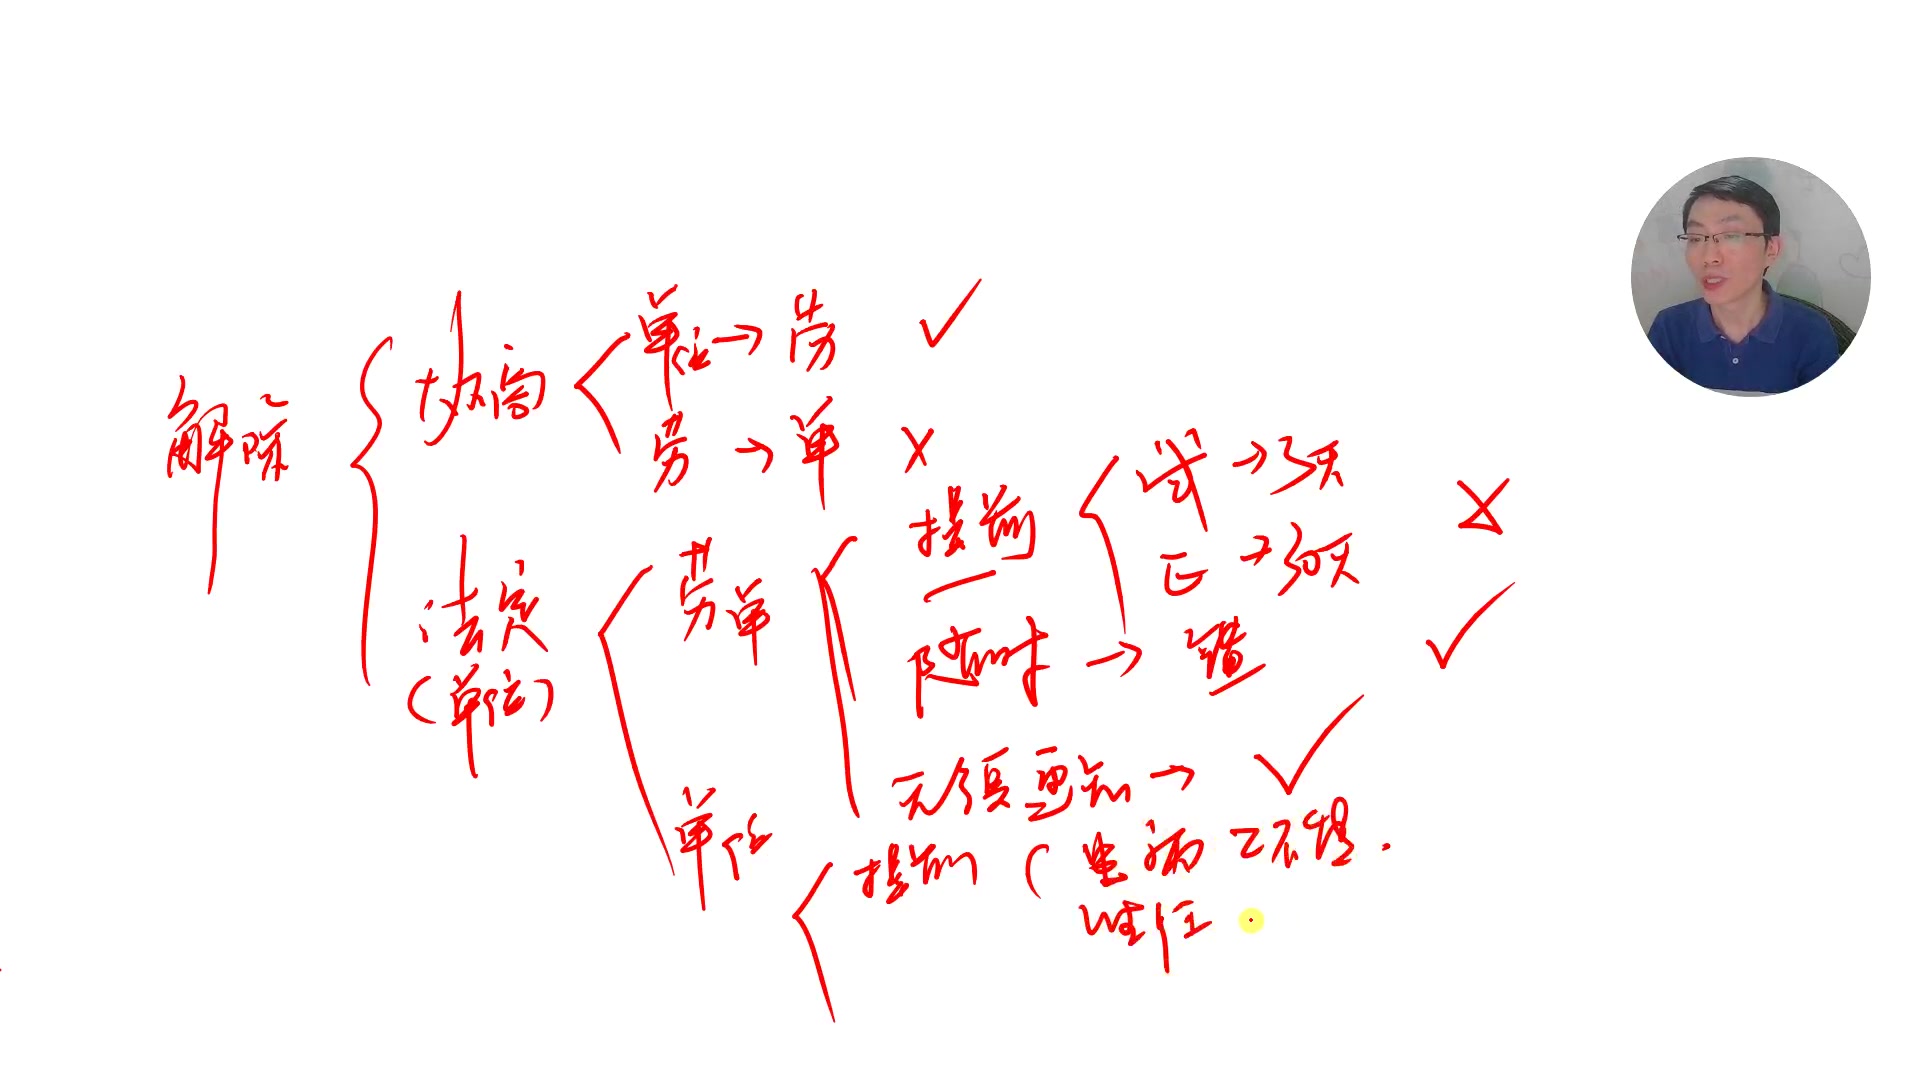 解除
协商
单位→劳 ✓
劳→单 ×
法定
(单位)
劳单
提前
试→3天
正→30天 ×
随时→错 ✓
无须通知→ ✓
单位
提前(患病 工不错.
谁任